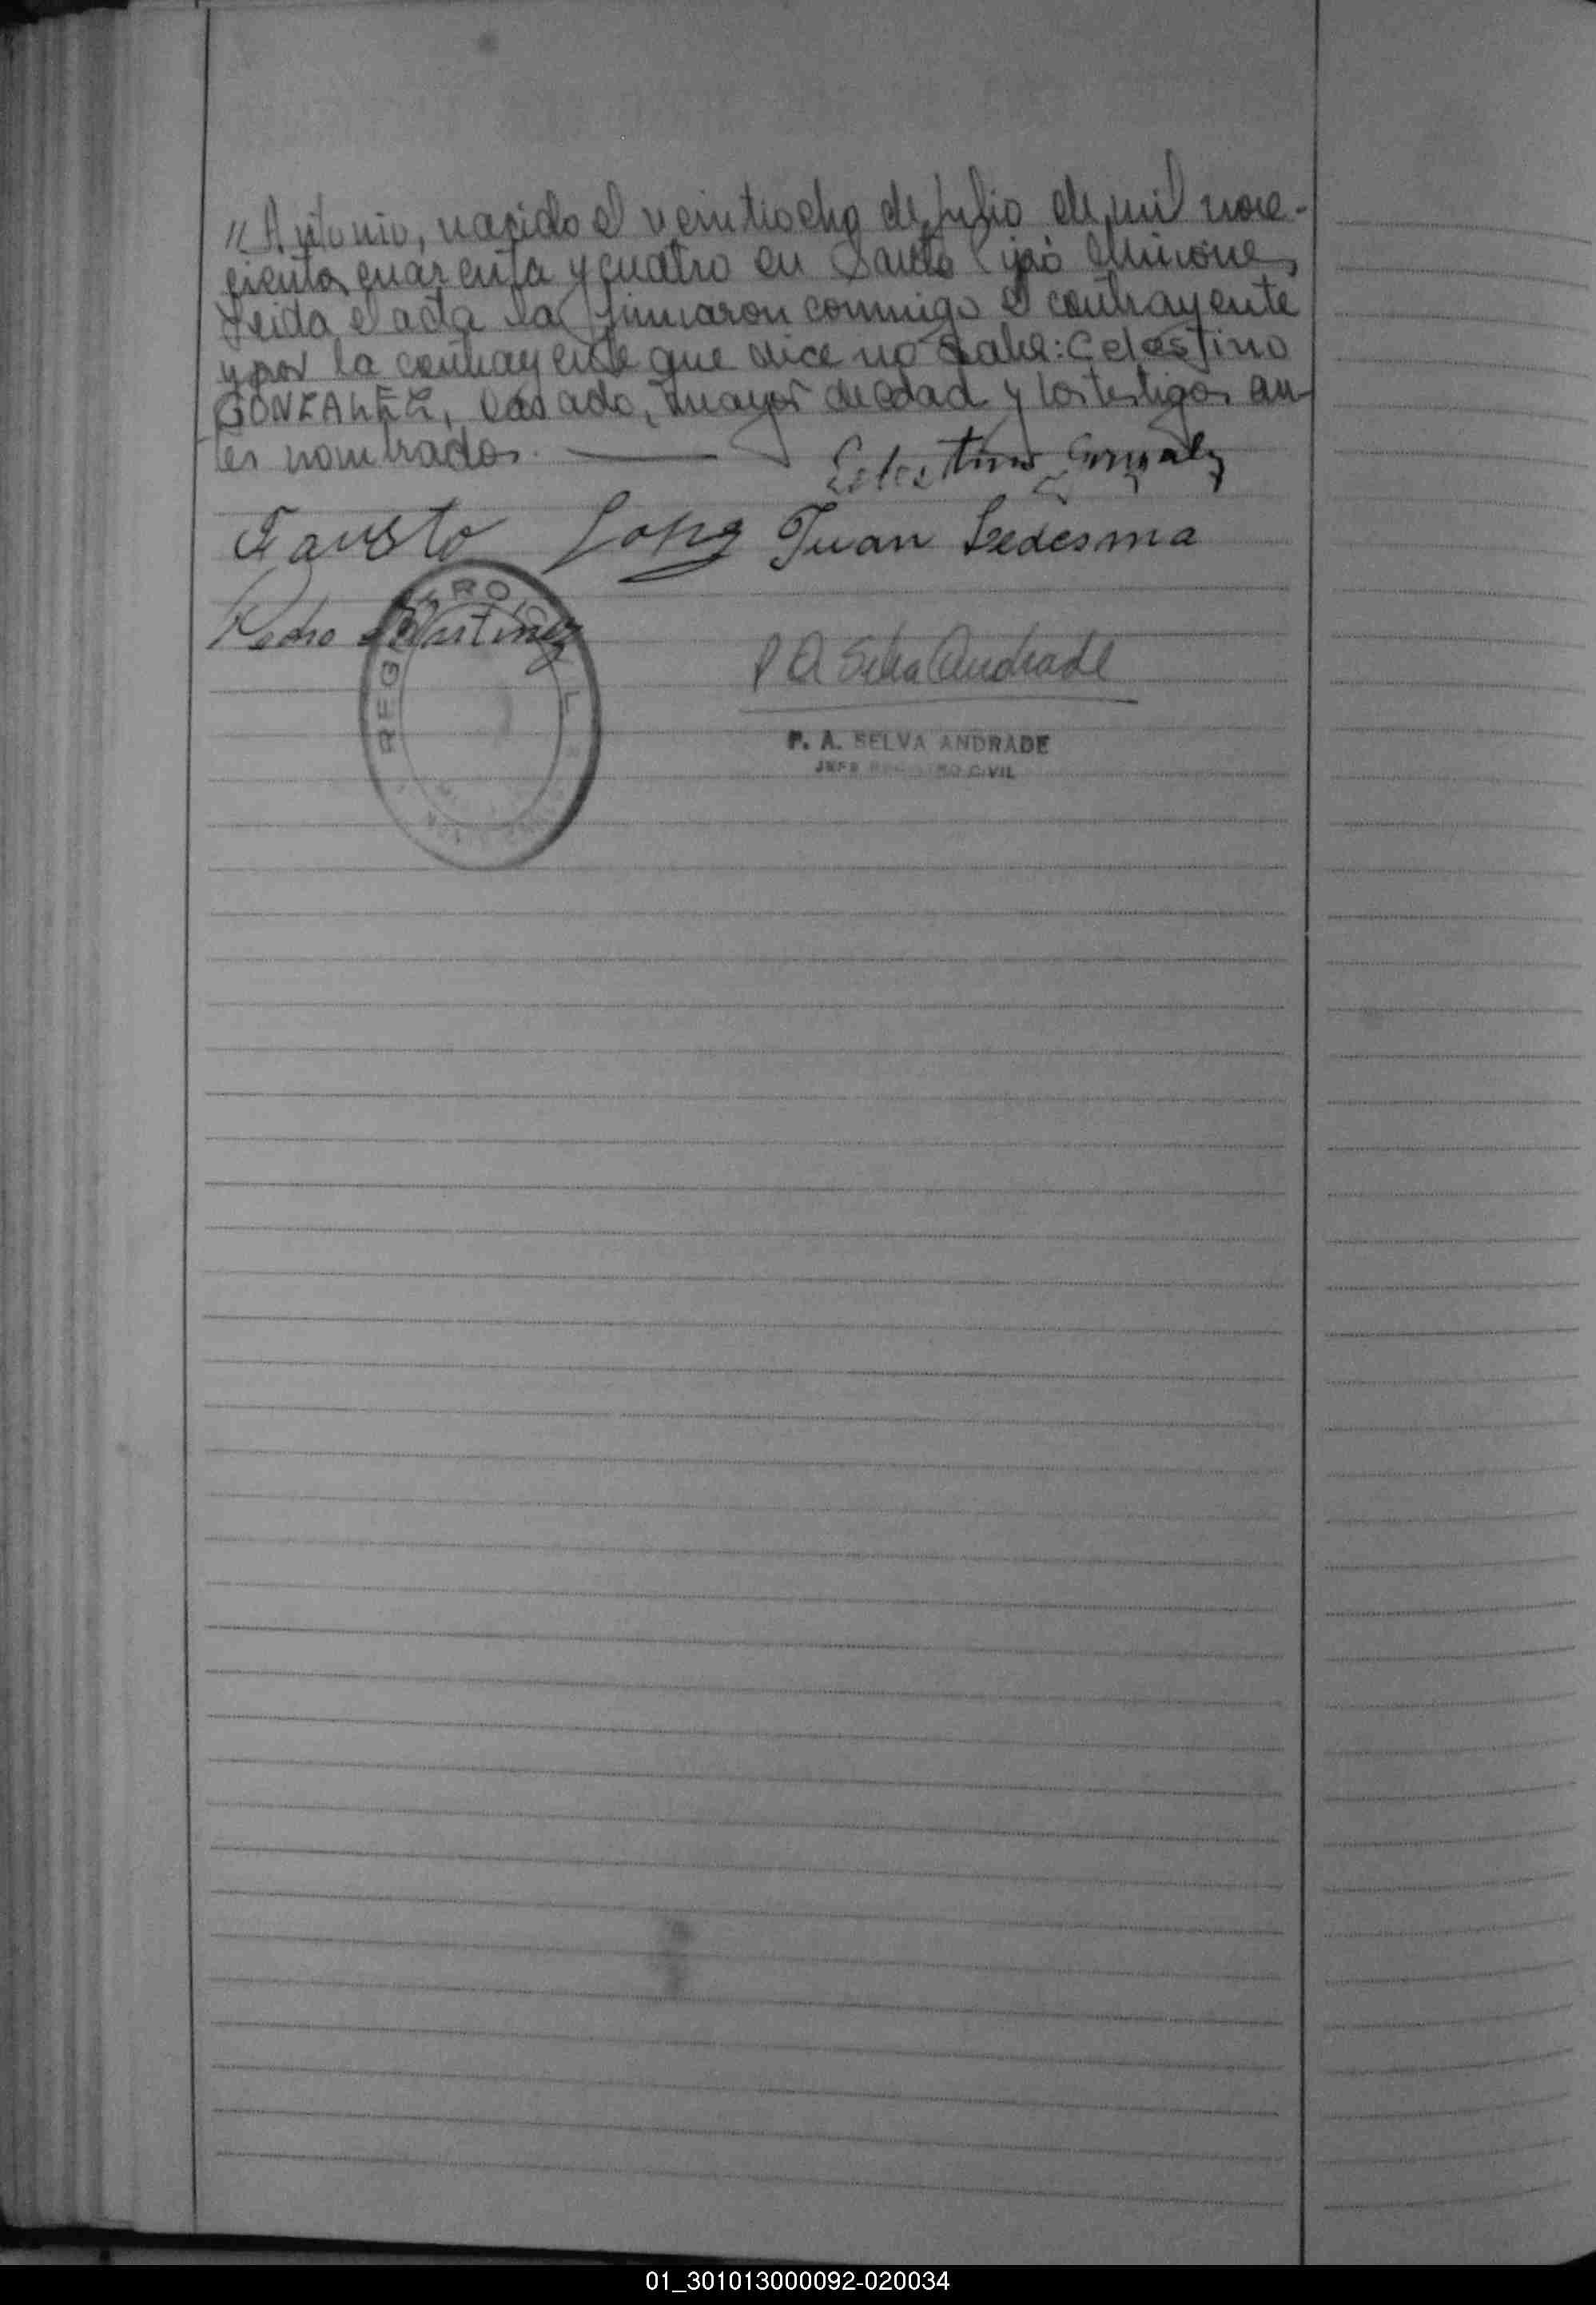 "Antonio, nacido el veintiocho de Julio de mil nove-
cientos cuarenta y cuatro en Santo Pipó Misiones
Leida el acta la firmaron conmigo el contrayente
y por la contrayente que dice no sabe: Celestino
GONZALEZ, casado, mayor de edad y los testigos an-
tes nombrados.
Celestino Gonzalez
Fausto Lopez Juan Ledesma
Pedro Martinez
REGISTRO CIVIL
P A Selva Andrade
P. A. SELVA ANDRADE
JEFE REGISTRO CIVIL
01_301013000092-020034